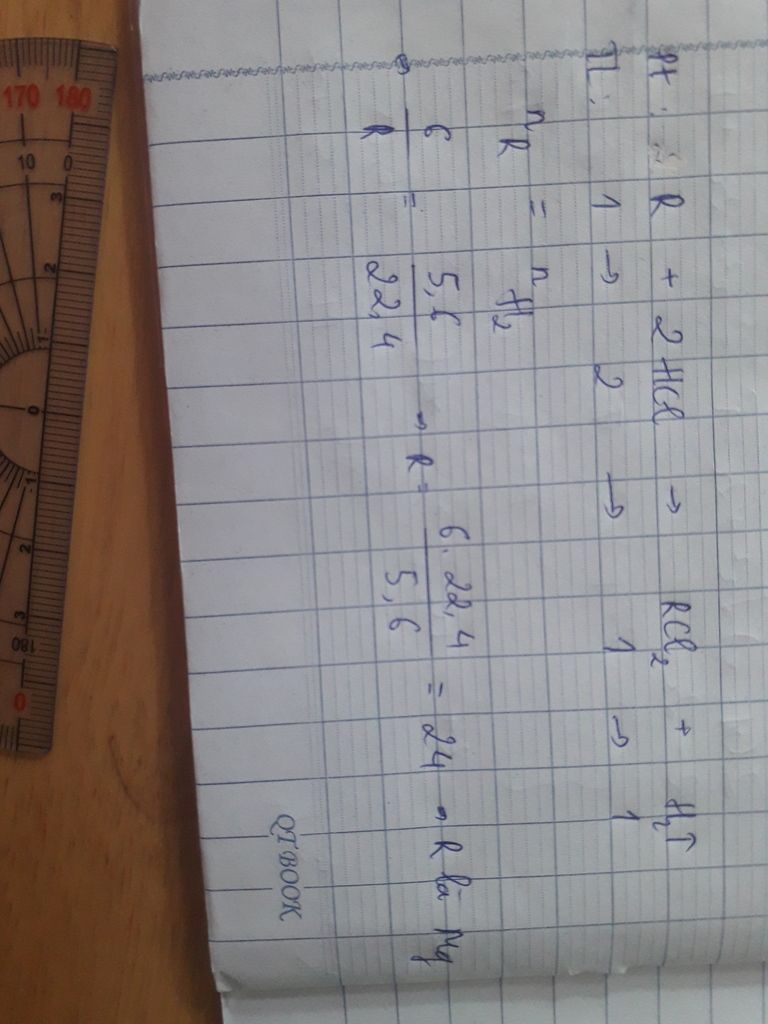 Pt: R + 2HCl → RCl₂ + H₂↑
TL: 1 → 2 → 1 → 1
nR = nH₂
⇒ 6/R = 5,6/22,4 ⇒ R = 6.22,4/5,6 = 24 ⇒ R là Mg
QT BOOK
170 180
10 0
3 2 1 0 1 2 3
180
0